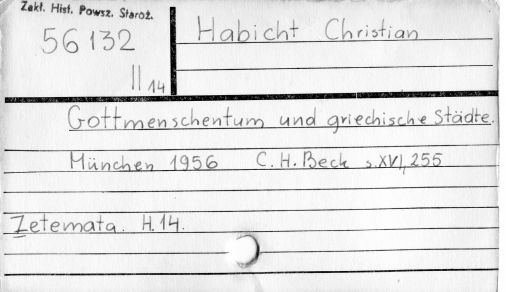 Zakł. Hist. Powsz. Staroż.
56132
II 14
Habicht Christian
Gottmenschentum und griechische Städte.
München 1956 C.H. Beck s. XVI, 255
Zetemata. H. 14.